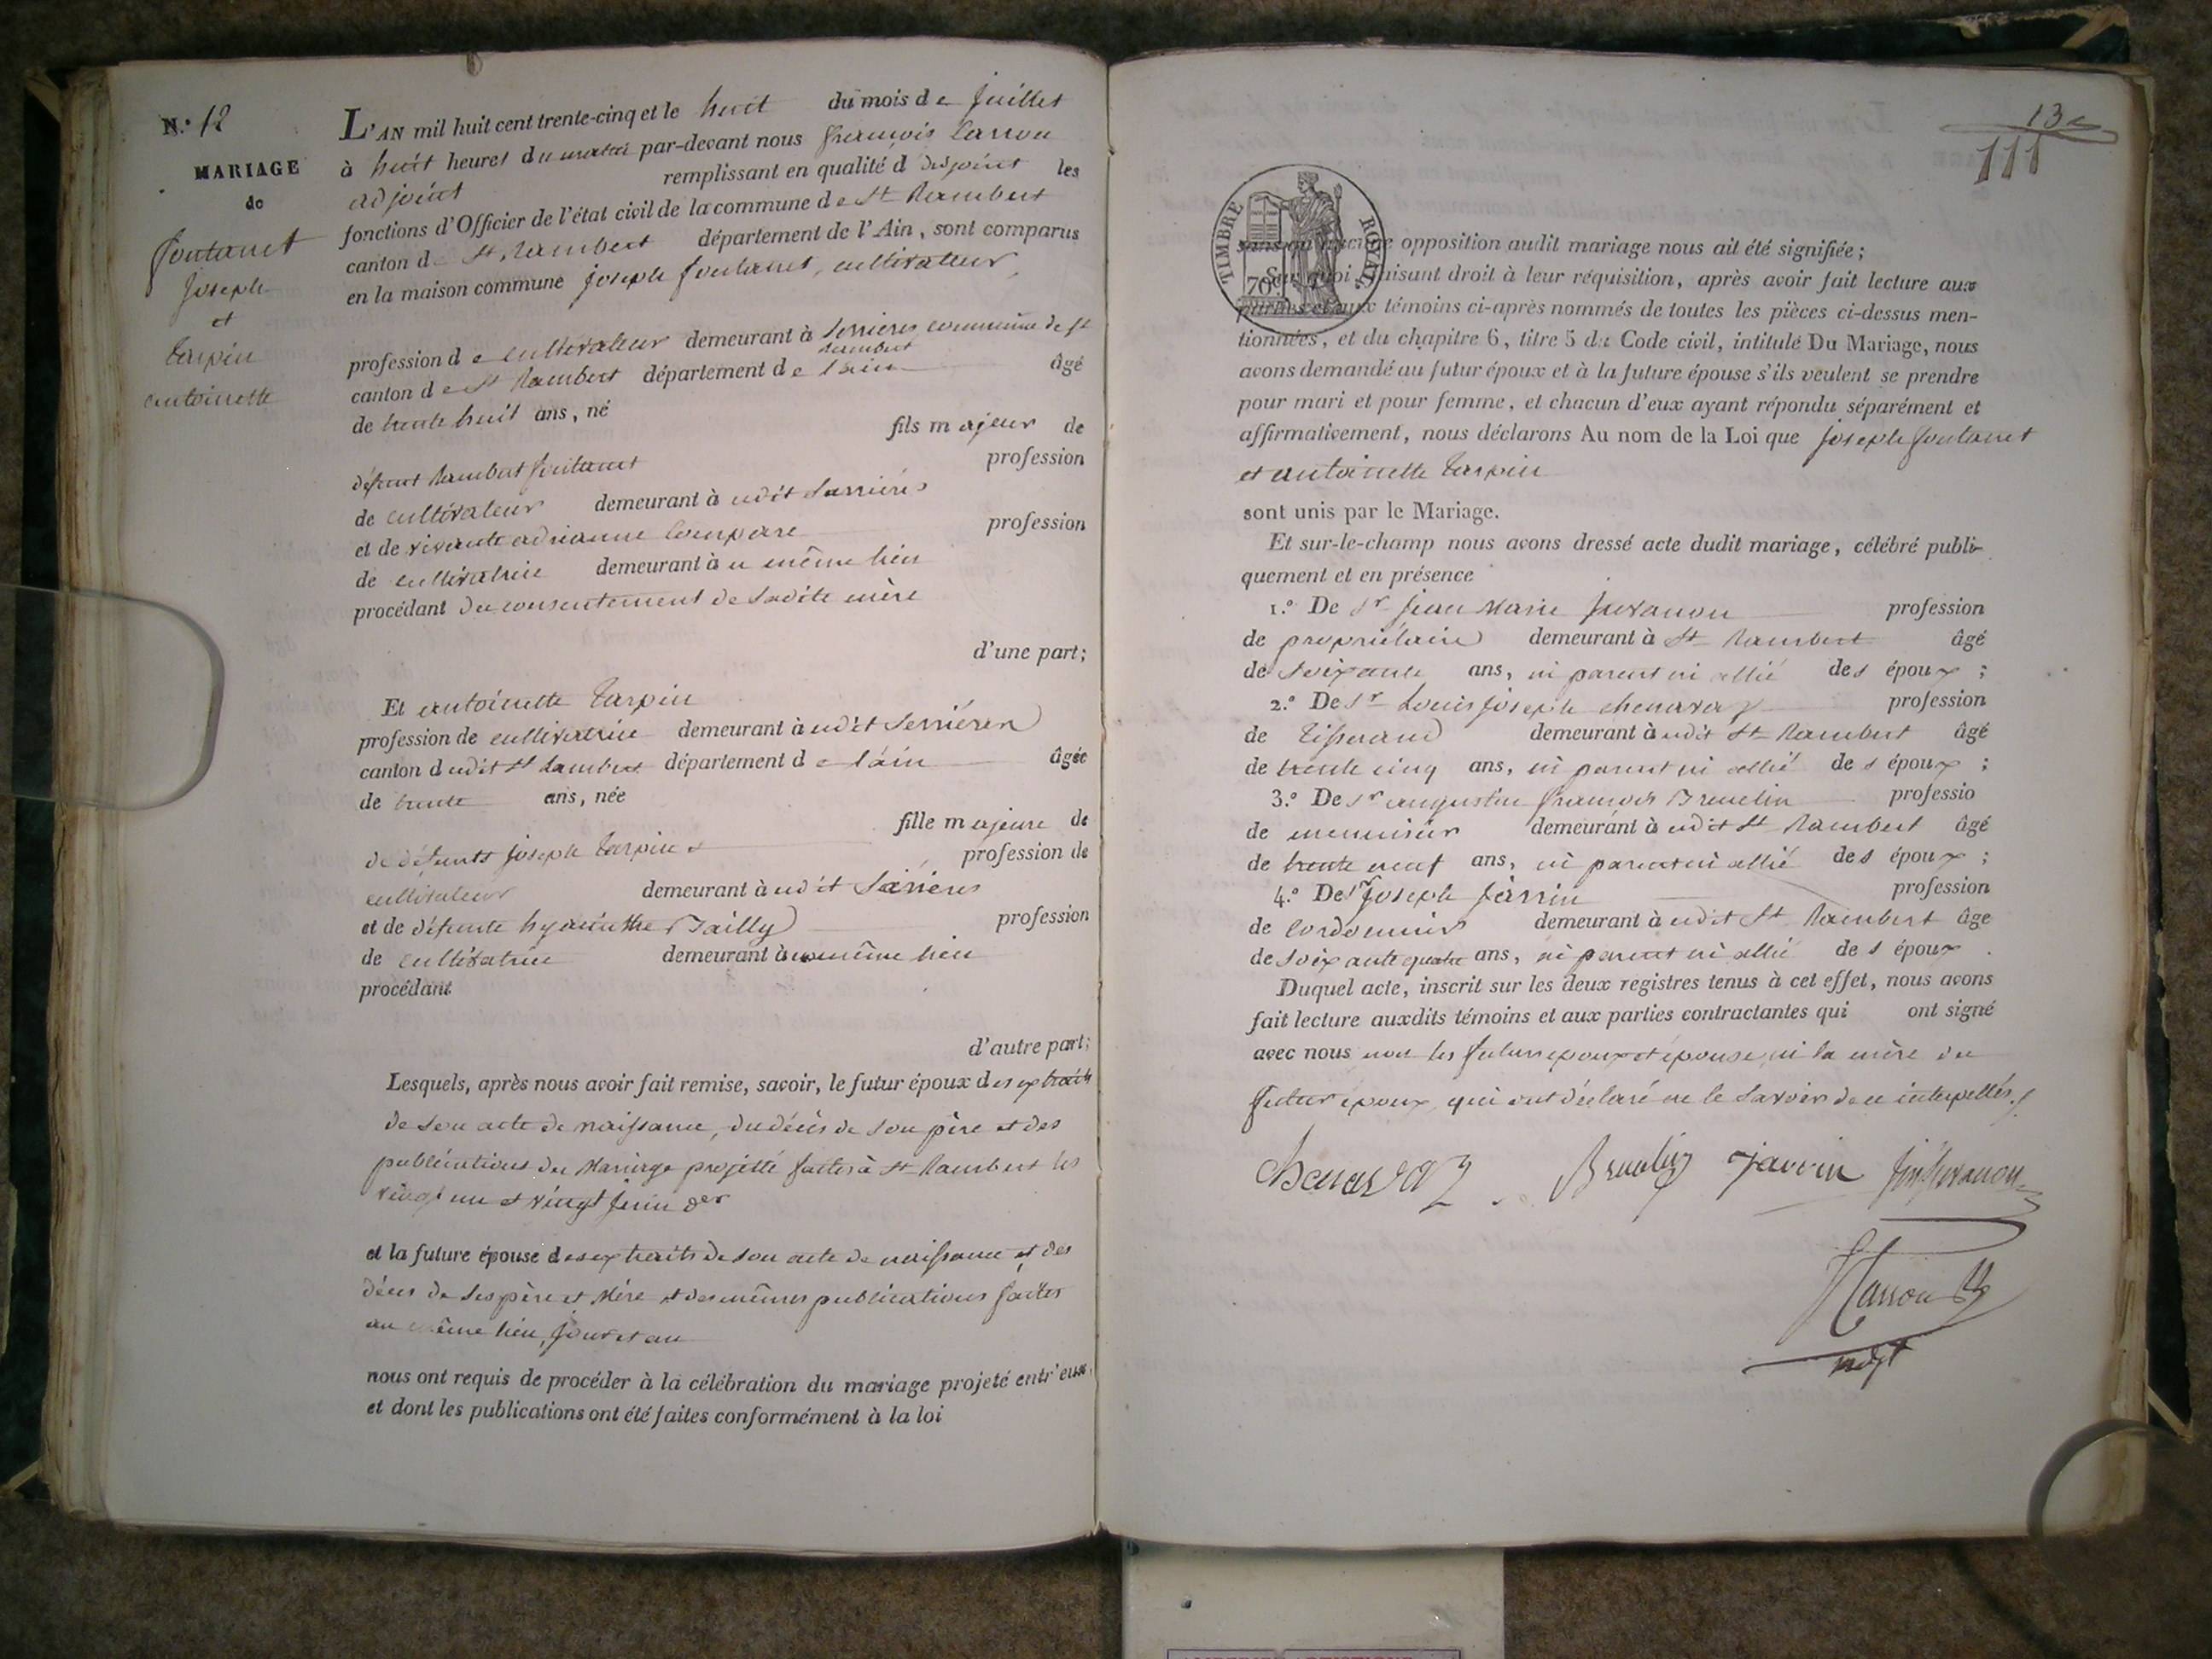 N.º 12
MARIAGE
de
fontanet
Joseph
et
tarpin
antoinette
L'AN mil huit cent trente-cinq et le huit du mois de Juillet
à huit heures du matin par-devant nous françois
adjoint remplissant en qualité d'adjoint les
fonctions d'Officier de l'état civil de la commune de St Rambert
canton de St Rambert département de l'Ain, sont comparus
en la maison commune joseph fontanet, cultivateur,
profession de cultivateur demeurant à Serrieres commune de St
Rambert
canton de St Rambert département de l'ain âgé
de trente huit ans, né fils majeur de
défunt Rambert fontanet profession
de cultivateur demeurant à udit Serrières
et de vivante adrianne Compare profession
de cultivatrice demeurant à u même lieu
procédant du consentement de sadite mère
d'une part;
Et antoinette tarpin
profession de cultivatrice demeurant à udit Serriéres
canton dudit St Rambert département de l'ain âgée
de trente ans, née
fille majeure de
de défunts joseph tarpin profession de
cultivateur demeurant à udit Serrieres
et de défunte hyacinthe Bailly profession
de cultivatrice demeurant à u même lieu
procédant
d'autre part;
Lesquels, après nous avoir fait remise, savoir, le futur époux des extraits
de son acte de naissance, du décès de son père et des
publications du Mariage projetté faites à St Rambert les
vingt un et vingt juin der
et la future épouse des extraits de son acte de naissance et des
décès de ses père et Mère et des mêmes publications faites
au même lieu, jour et an
nous ont requis de procéder à la célébration du mariage projeté entr'eux,
et dont les publications ont été faites conformément à la loi
13e
111
TIMBRE ROYAL
70
sans qu'aucune opposition audit mariage nous ait été signifiée;
Sur quoi faisant droit à leur réquisition, après avoir fait lecture aux
parties et aux témoins ci-après nommés de toutes les pièces ci-dessus men-
tionnées, et du chapitre 6, titre 5 du Code civil, intitulé Du Mariage, nous
avons demandé au futur époux et à la future épouse s'ils veulent se prendre
pour mari et pour femme, et chacun d'eux ayant répondu séparément et
affirmativement, nous déclarons Au nom de la Loi que joseph fontanet
et antoinette tarpin
sont unis par le Mariage.
Et sur-le-champ nous avons dressé acte dudit mariage, célébré publi-
quement et en présence
1.º De Sr Jean Marie Juvanon profession
de propriétaire demeurant à St Rambert âgé
de soixante ans, ni parent ni allié des époux;
2.º De Sr Louis joseph chenavaz profession
de Tisserand demeurant à udit St Rambert âgé
de trente cinq ans, ni parent ni allié des époux;
3.º De Sr augustin françois Bruelin professio
de menuisier demeurant à udit St Rambert âgé
de trente neuf ans, ni parent ni allié des époux;
4.º De Sr Joseph Jarrin profession
de Cordonnier demeurant à udit St Rambert âgé
de soixante quatre ans, ni parent ni allié des époux.
Duquel acte, inscrit sur les deux registres tenus à cet effet, nous avons
fait lecture auxdits témoins et aux parties contractantes qui ont signé
avec nous non les futurs epoux et épouse, ni la mère du
futur époux, qui ont déclaré ne le savoir de ce interpellés.
Chenavaz Bruelin Jarrin Juvanon
adjt